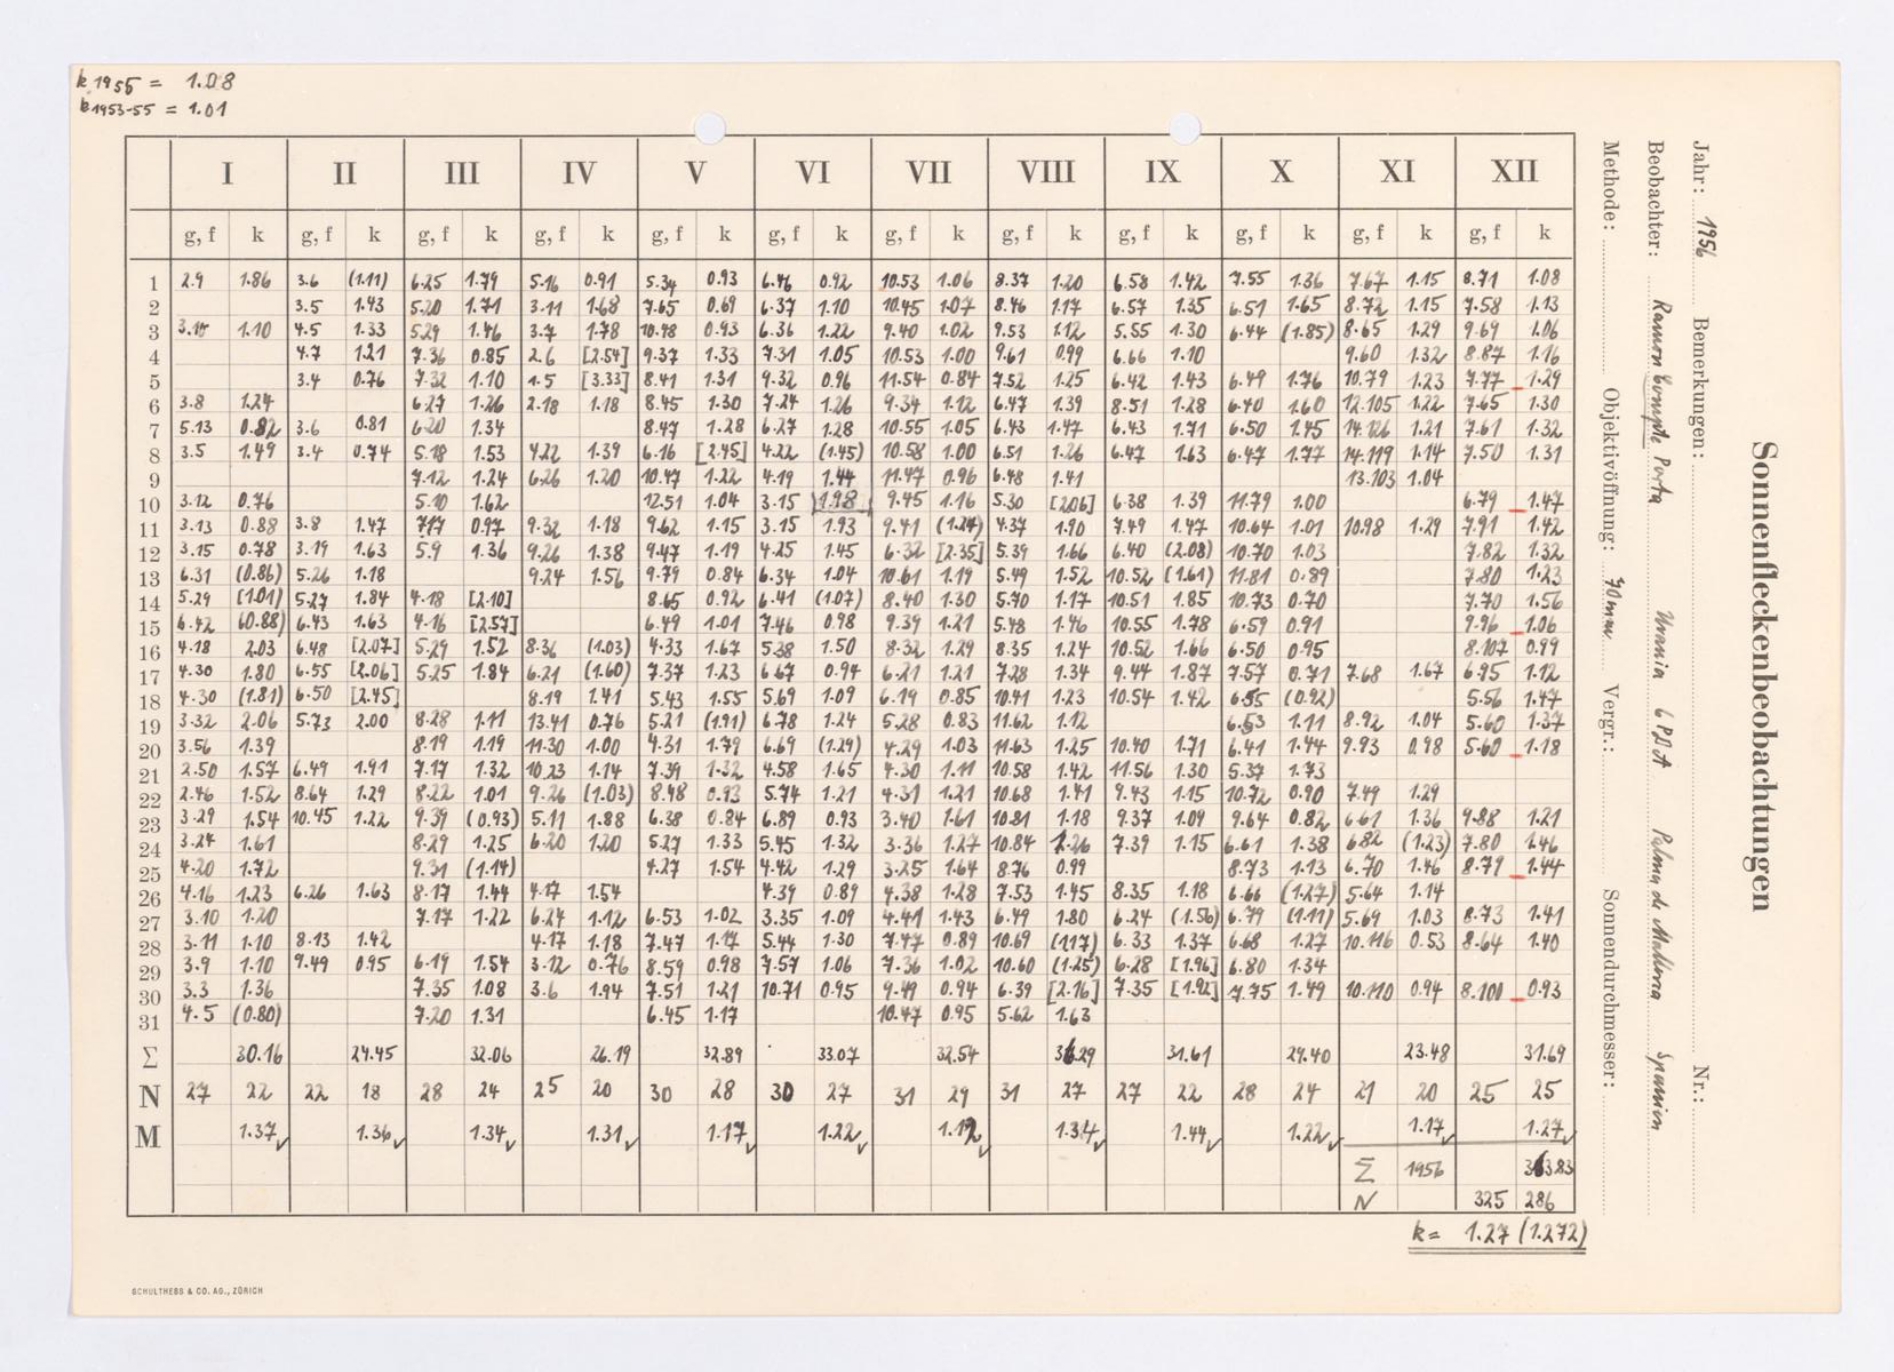 k 1955 = 1.08
k 1953-55 = 1.01
I II III IV V VI VII VIII IX X XI XII
g, f k g, f k g, f k g, f k g, f k g, f k g, f k g, f k g, f k g, f k g, f k g, f k
1 2.9 1.86 3.6 (1.11) 6.25 1.79 5.16 0.91 5.34 0.93 6.46 0.92 10.53 1.06 8.37 1.20 6.58 1.42 7.55 1.36 7.67 1.15 8.71 1.08
2 3.5 1.43 5.20 1.71 3.11 1.68 7.65 0.69 6.37 1.10 10.45 1.07 8.46 1.17 6.57 1.35 6.51 1.65 8.72 1.15 7.58 1.13
3 1.10 4.5 1.33 5.29 1.46 3.7 1.78 10.98 0.93 6.36 1.22 9.40 1.02 9.53 1.12 5.55 1.30 6.44 (1.85) 8.65 1.29 9.69 1.06
4 4.7 1.21 7.36 0.85 2.6 [2.54] 9.37 1.33 7.31 1.05 10.53 1.00 9.61 0.99 6.66 1.10 9.60 1.32 8.87 1.16
5 3.4 0.76 7.32 1.10 1.5 [3.33] 8.41 1.31 9.32 0.96 11.54 0.84 7.52 1.25 6.42 1.43 6.49 1.76 10.79 1.23 7.77 1.29
6 3.8 1.24 6.27 1.26 2.18 1.18 8.45 1.30 7.24 1.26 9.34 1.12 6.47 1.39 8.51 1.28 6.40 1.60 12.105 1.22 7.65 1.30
7 5.13 0.82 3.6 0.81 6.20 1.34 8.47 1.28 6.27 1.28 10.55 1.05 6.43 1.47 6.43 1.71 6.50 1.45 14.126 1.21 7.61 1.32
8 3.5 1.49 3.4 0.74 5.18 1.53 4.22 1.39 6.16 [2.45] 4.22 (1.45) 10.58 1.00 6.51 1.26 6.47 1.63 6.47 1.77 14.119 1.14 7.50 1.31
9 7.12 1.24 6.26 1.20 10.47 1.22 4.19 1.44 11.47 0.96 6.48 1.41 13.103 1.04
10 3.12 0.76 5.10 1.62 12.51 1.04 3.15 1.98 9.45 1.16 5.30 [2.06] 6.38 1.39 11.79 1.00 6.79 1.47
11 3.13 0.88 3.8 1.47 7.17 0.97 9.32 1.18 9.62 1.15 3.15 1.93 9.41 (1.24) 4.37 1.90 7.49 1.47 10.64 1.01 10.98 1.29 7.91 1.42
12 3.15 0.78 3.19 1.63 5.9 1.36 9.26 1.38 9.47 1.19 4.25 1.45 6.32 [2.35] 5.39 1.66 6.40 (2.08) 10.70 1.03 7.82 1.32
13 6.31 (0.86) 5.26 1.18 9.24 1.56 9.79 0.84 6.34 1.04 10.61 1.19 5.49 1.52 10.52 (1.61) 11.81 0.89 7.80 1.23
14 5.29 (1.01) 5.27 1.84 4.18 [2.10] 8.65 0.92 6.41 (1.07) 8.40 1.30 5.70 1.17 10.51 1.85 10.73 0.70 7.70 1.56
15 6.42 (0.88) 6.43 1.63 4.16 [2.57] 6.49 1.01 7.46 0.98 9.39 1.21 5.48 1.46 10.55 1.78 6.59 0.91 9.96 1.06
16 4.18 2.03 6.48 [2.07] 5.29 1.52 8.36 (1.03) 4.33 1.67 5.38 1.50 8.32 1.29 8.35 1.24 10.52 1.66 6.50 0.95 8.107 0.99
17 4.30 1.80 6.55 [2.06] 5.25 1.84 6.21 (1.60) 7.37 1.23 6.67 0.94 6.21 1.21 7.28 1.34 9.44 1.87 7.57 0.71 7.68 1.67 6.95 1.12
18 4.30 (1.81) 6.50 [2.45] 8.19 1.41 5.43 1.55 5.69 1.09 6.19 0.85 10.41 1.23 10.54 1.42 6.55 (0.92) 5.56 1.47
19 3.32 2.06 5.73 2.00 8.28 1.11 13.41 0.76 5.21 (1.91) 6.78 1.24 5.28 0.83 11.62 1.12 6.53 1.11 8.92 1.04 5.60 1.37
20 3.56 1.39 8.19 1.19 11.30 1.00 4.31 1.79 6.69 (1.29) 4.29 1.03 11.63 1.25 10.40 1.71 6.41 1.44 9.93 0.98 5.60 1.18
21 2.50 1.57 6.49 1.91 7.17 1.32 10.23 1.14 7.39 1.32 4.58 1.65 4.30 1.11 10.58 1.42 11.56 1.30 5.37 1.73
22 2.46 1.52 8.64 1.29 8.22 1.01 9.26 (1.03) 8.48 0.93 5.74 1.21 4.31 1.21 10.68 1.41 9.43 1.15 10.72 0.90 7.49 1.29
23 3.29 1.54 10.45 1.22 9.39 (0.93) 5.11 1.88 6.38 0.84 6.89 0.93 3.40 1.61 10.81 1.18 9.37 1.09 9.64 0.82 6.61 1.36 9.88 1.21
24 3.24 1.61 8.29 1.25 6.20 1.20 5.27 1.33 5.45 1.32 3.36 1.27 10.84 1.26 7.39 1.15 6.61 1.38 6.82 (1.23) 7.80 1.46
25 4.20 1.72 9.31 (1.14) 4.27 1.54 4.42 1.29 3.25 1.64 8.76 0.99 8.73 1.13 6.70 1.46 8.79 1.44
26 4.16 1.23 6.26 1.63 8.17 1.44 4.17 1.54 4.39 0.89 4.38 1.28 7.53 1.45 8.35 1.18 6.66 (1.27) 5.64 1.14
27 3.10 1.20 7.17 1.22 6.24 1.12 6.53 1.02 3.35 1.09 4.41 1.43 6.49 1.80 6.24 (1.56) 6.79 (1.11) 5.69 1.03 8.73 1.41
28 3.11 1.10 8.13 1.42 4.17 1.18 7.47 1.17 5.44 1.30 7.47 0.89 10.69 (1.17) 6.33 1.37 6.68 1.27 10.116 0.53 8.64 1.40
29 3.9 1.10 9.49 0.95 6.19 1.54 3.12 0.76 8.59 0.98 7.57 1.06 7.36 1.02 10.60 (1.25) 6.28 [1.96] 6.80 1.34
30 3.3 1.36 7.35 1.08 3.6 1.94 7.51 1.21 10.71 0.95 9.49 0.94 6.39 [2.16] 7.35 [1.92] 7.75 1.49 10.110 0.94 8.100 0.93
31 4.5 (0.80) 7.20 1.31 6.45 1.17 10.47 0.95 5.62 1.63
Σ 30.16 24.45 32.06 26.19 32.89 33.07 32.54 36.29 31.61 29.40 23.48 31.69
N 27 22 22 18 28 24 25 20 30 28 30 27 31 29 31 27 27 22 28 24 21 20 25 25
M 1.37 1.36 1.34 1.31 1.17 1.22 1.12 1.34 1.44 1.22 1.17 1.27
Σ 1956 363.83
N 325 286
k = 1.27 (1.272)
SCHULTHESS & CO. AG., ZÜRICH
Sonnenfleckenbeobachtungen
Jahr: 1956 Bemerkungen: Nr.:
Beobachter: Ramon Compte Porta Urania 6 PDA Palma de Mallorca Spanien
Methode: Objektivöffnung: 70mm Vergr.: Sonnendurchmesser: